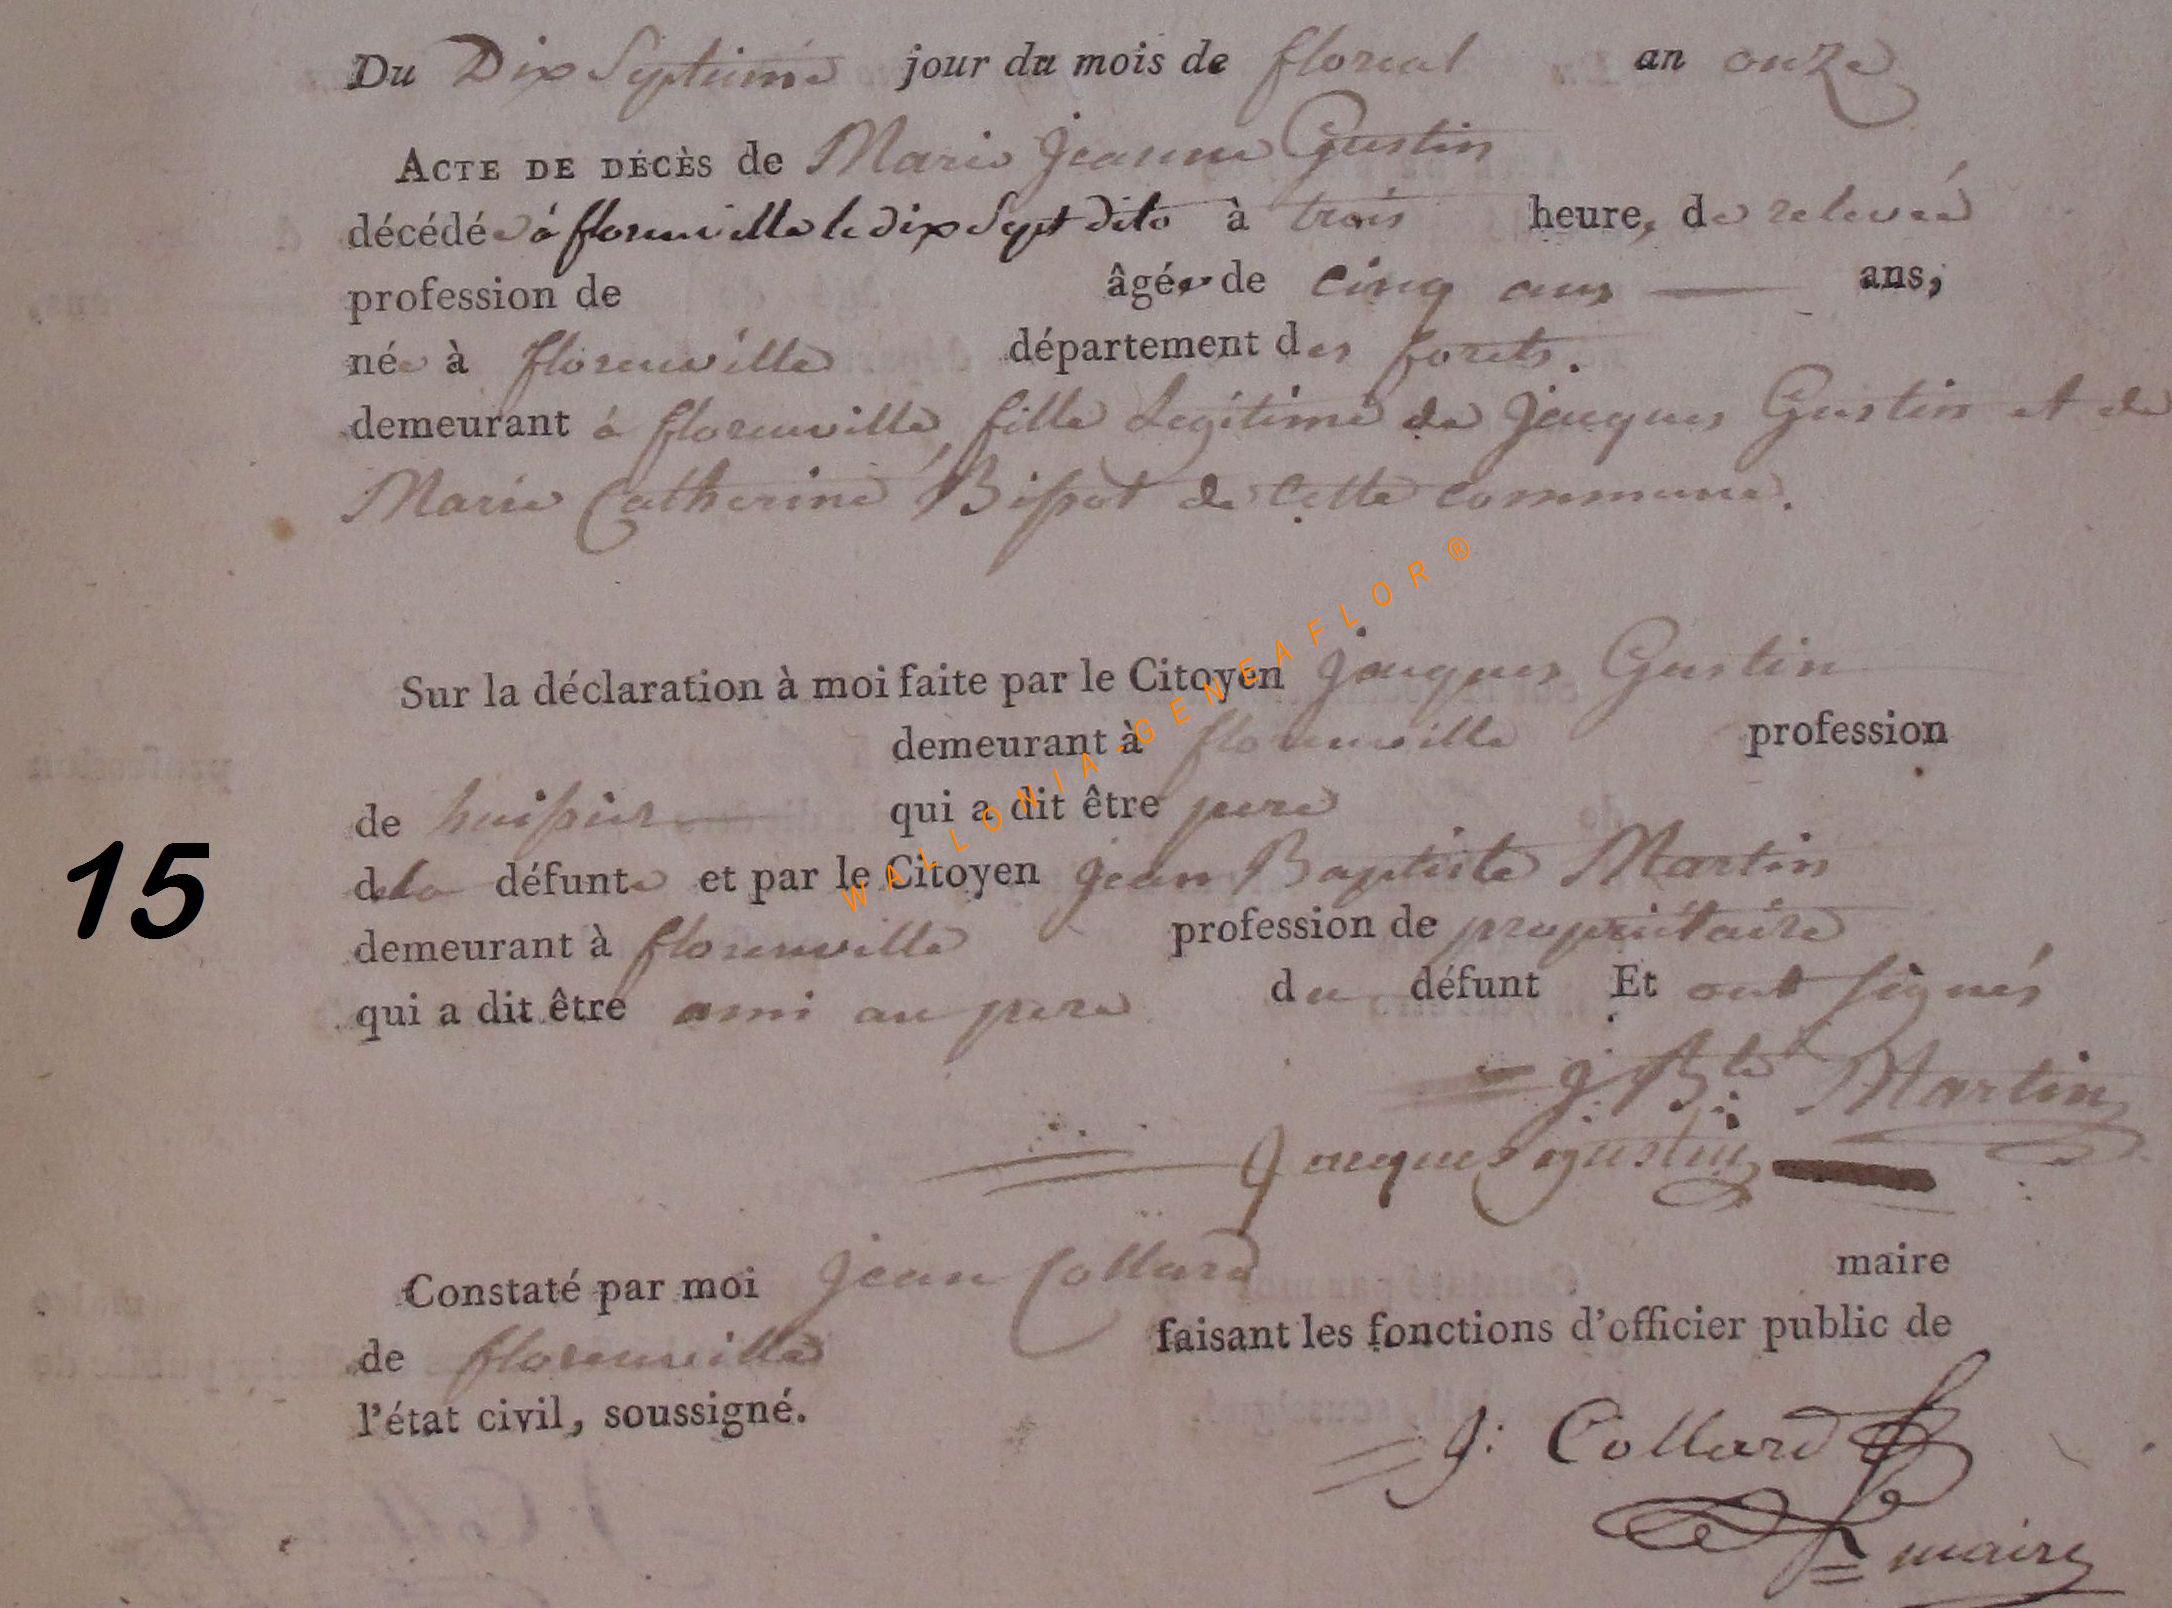 Du Dix Septieme jour du mois de floreal an onze
ACTE DE DÉCÈS de Marie Jeanne Gustin
décédée á florenville le dix Sept dito à trois heure, de relevée
profession de âgée de cinq ans — ans,
née à florenville département des forets.
demeurant á florenville, fille Legitime de Jacques Gustin et de
Marie Catherine Bissot de cette commune.
Sur la déclaration à moi faite par le Citoyen jacques Gustin
demeurant à florenville profession
de huissier qui a dit être pere
dela défunte et par le Citoyen jean Baptiste Martin
demeurant à florenville profession de propriétaire
qui a dit être ami au pere du défunt Et ont signés
j: Bte: Martin
Jacques gustin
Constaté par moi jean Collard maire
de florenville faisant les fonctions d'officier public de
l'état civil, soussigné.
J: Collard
maire
15
WALLONIA-GENEAFLOR ®